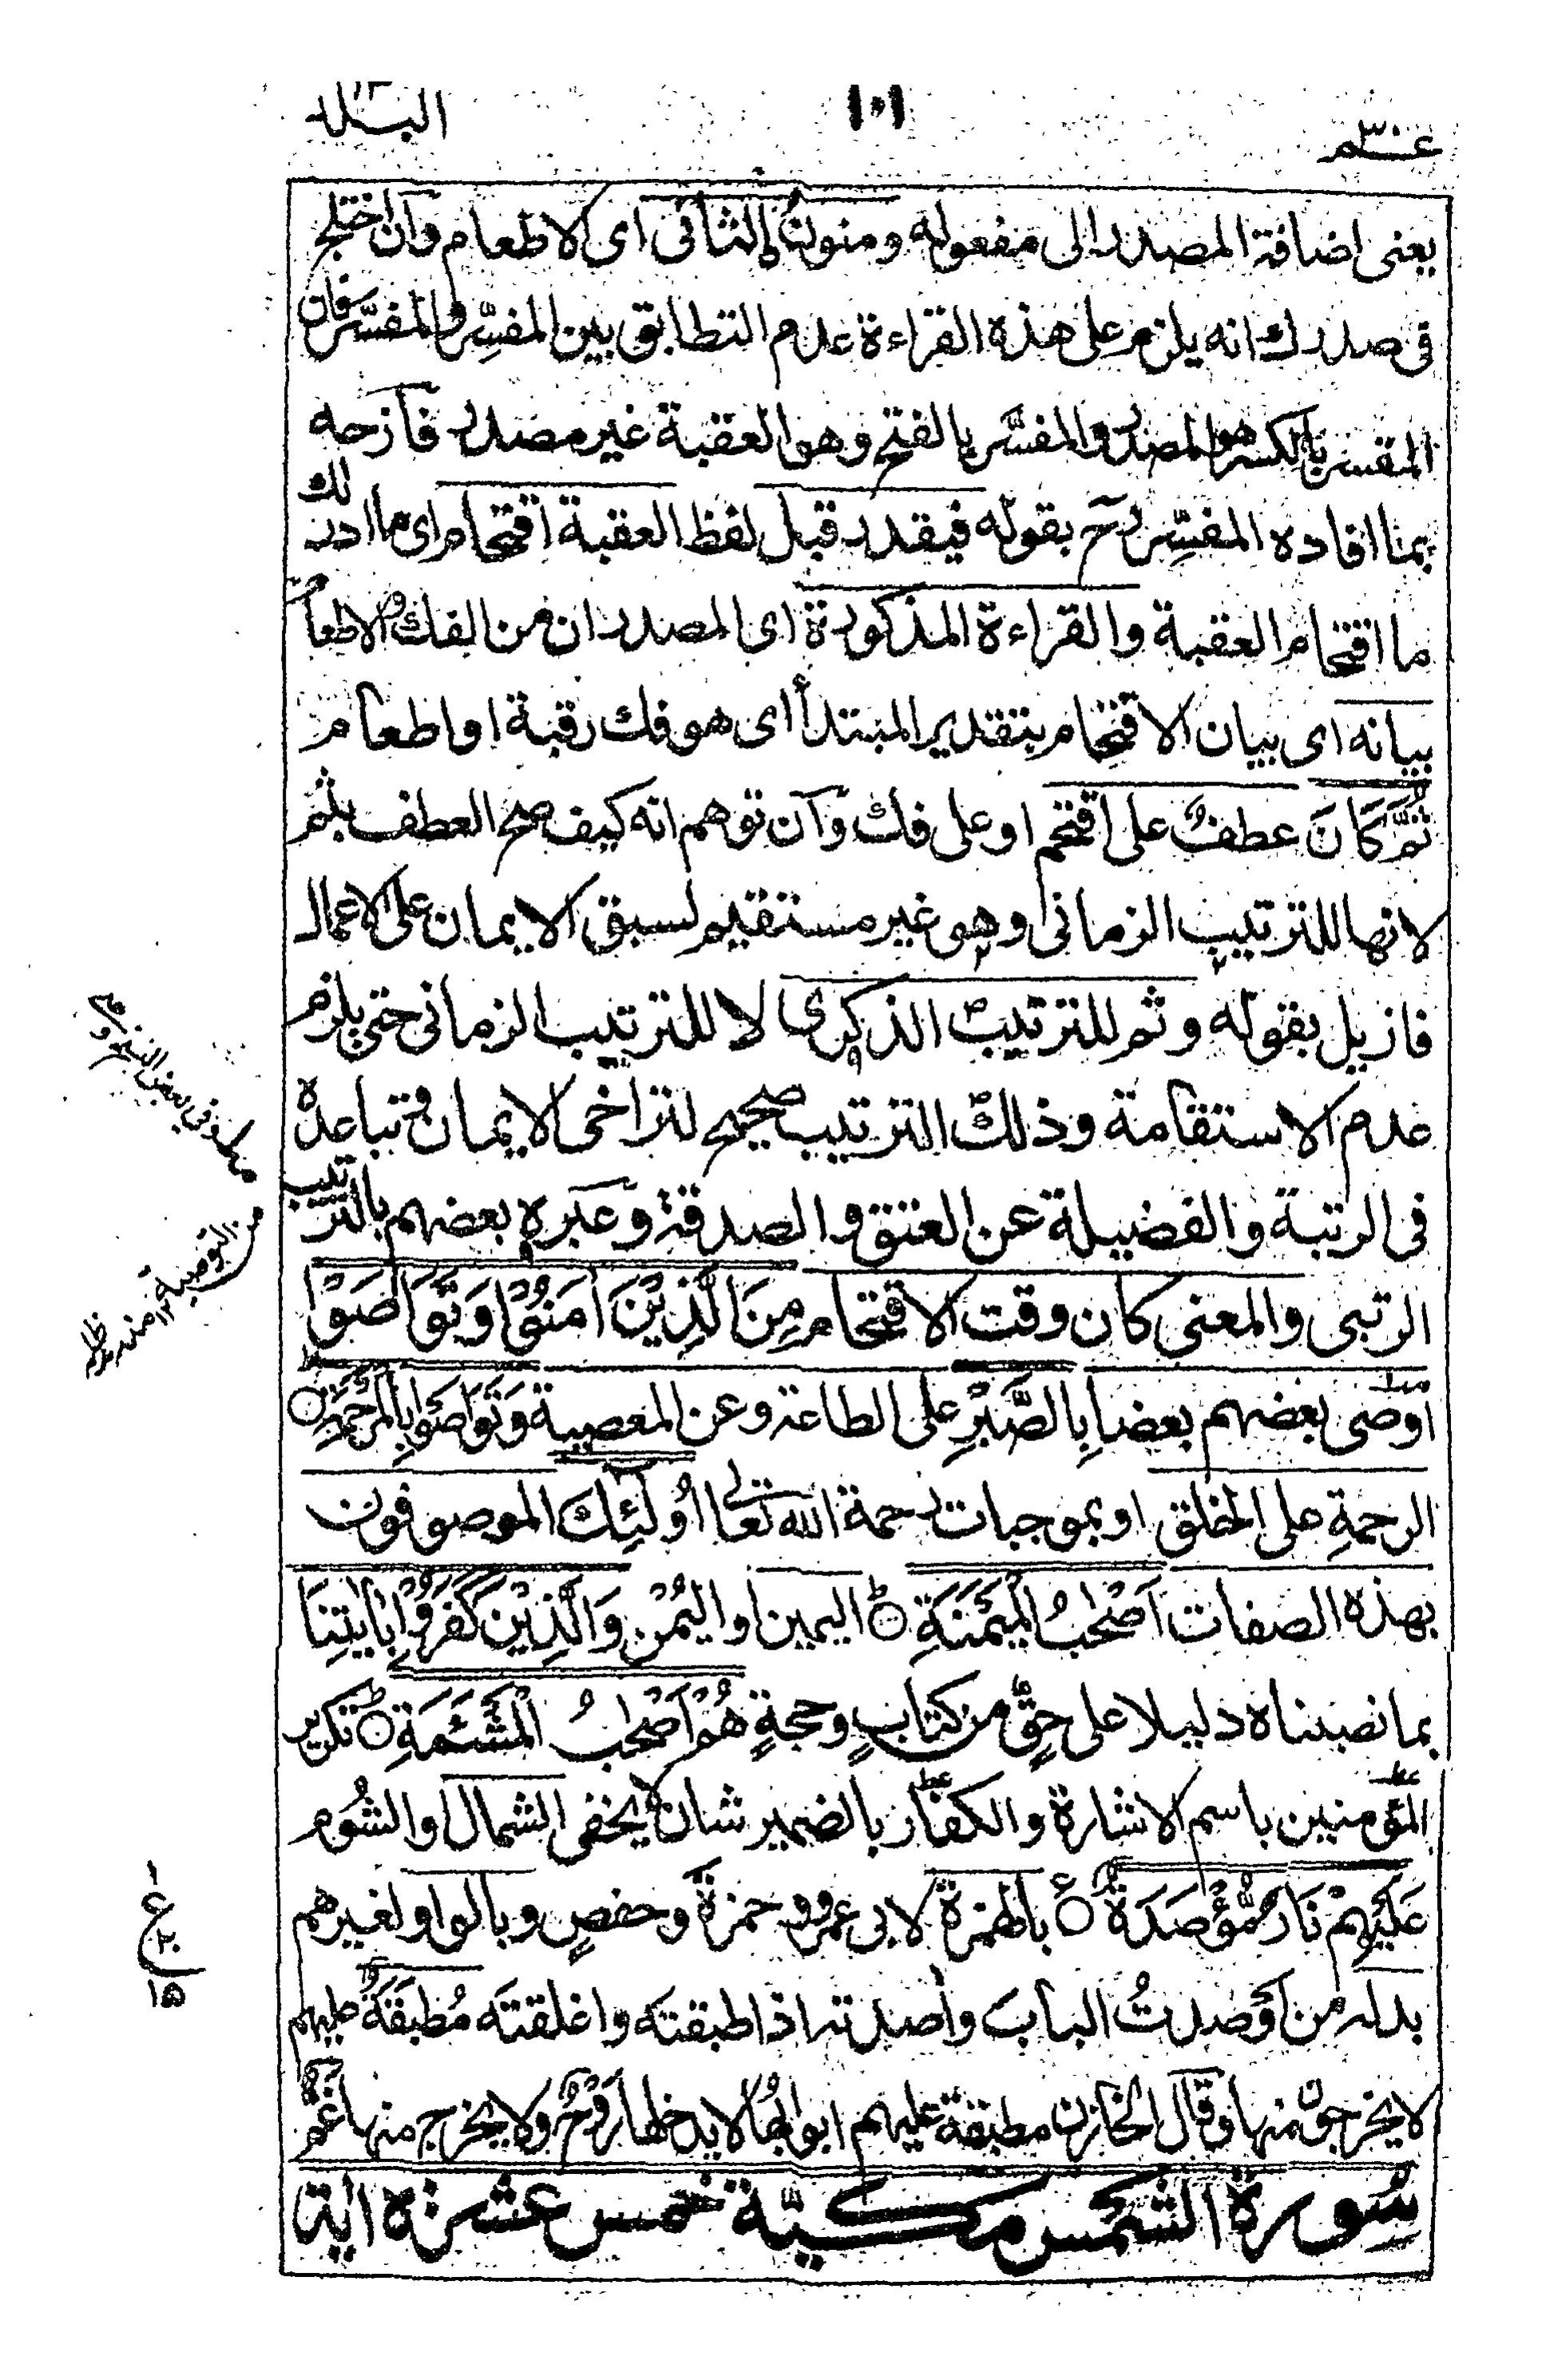 عم ٣٠
١٠١
البلد
يعنى اضافة المصدر الى مفعوله ومنونُ الثانى اى الاطعام وان اختلج
فى صدرك انه يلزم على هذه القراءة عدم التطابق بين المفسِّر والمفسَّر فان
المفسر بالكسر هو المصدر والمفسَّر بالفتح وهو العقبة غير مصدر فازحه
بما افاده المفسِّر رح بقوله فيقدر قبل لفظ العقبة اقتحام اى ما ادرىك
ما اقتحام العقبة والقراءة المذكورة اى المصدران من الفك والاطعام
بيانه اى بيان الاقتحام بتقدير المبتدأ اى هو فك رقبة او اطعام
ثُمَّ كَانَ عطفٌ على اقتحم او على فك وان توهم انه كيف صح العطف بثم
لانها للترتيب الزمانى وهو غير مستقيم لسبق الايمان على الاعمال
فازيل بقوله وثم للترتيب الذكرى لا للترتيب الزمانى حتى يلزم
عدم الاستقامة وذلك الترتيب صحيح لتراخى الايمان وتباعده
فى الرتبة والفضيلة عن العتق والصدقة وعبره بعضهم بالترتيب
الرتبى والمعنى كان وقت الاقتحام مِنَ الَّذِيْنَ اٰمَنُوْا وَتَوَاصَوْا
اوصى بعضهم بعضا بِالصَّبْرِ على الطاعة وعن المعصية وَتَوَاصَوْا بِالْمَرْحَمَةِ
الرحمةِ على الخلق او بموجبات رحمة الله تعالى اُولٰٓئِكَ الموصوفون
بهذه الصفات اَصْحٰبُ الْمَيْمَنَةِ ط اليمين او اليُمْن وَالَّذِيْنَ كَفَرُوْا بِاٰيٰتِنَا
بما نصبناه دليلا على حقٍّ من كتابٍ وحجةٍ هُمْ اَصْحٰبُ الْمَشْئَمَةِ ط تكرير
المؤمنين باسم الاشارة والكفّار بالضمير شان لا يخفى الشمال او الشُوم
عَلَيْهِمْ نَارٌ مُّؤْصَدَةٌ ع بالهمزة لابى عمرو وحمزة وحفصٍ وبالواو لغيرهم
بدله من اوصدتُ الباب واٰصدته اذا طبقته واغلقته مُطبَقَةٌ عليهم
لا يخرجون منها وقال الخازن مطبقة عليهم ابوابُها لا يدخلها رَوْحٌ ولا يخرج منها غمٌّ
سُورة الشَّمس مكيّة خمس عشرة اٰية
هكذا وفى بعض النسخ
من التوصية ١٢ منه مد ظله
١
ع
٢٠
١٥